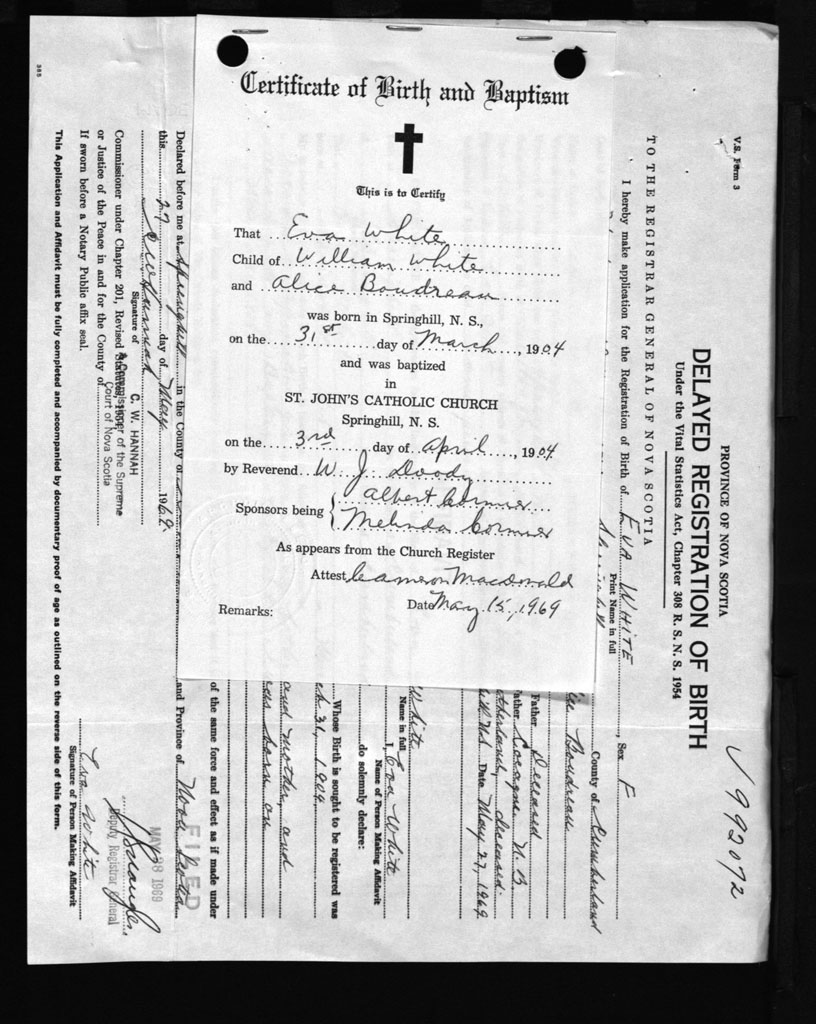 Certificate of Birth and Baptism
This is to Certify
That Eva White
Child of William White
and Alice Boudreau
was born in Springhill, N. S.,
on the 31st day of March, 1904
and was baptized
in
ST. JOHN'S CATHOLIC CHURCH
Springhill, N. S.
on the 3rd day of April, 1904
by Reverend W J Doody
Sponsors being { Albert Cormier
Melinda Cormier
As appears from the Church Register
Attest Cameron Macdonald
Date May 15, 1969
Remarks:
V.S. Form 3
V 992072
PROVINCE OF NOVA SCOTIA
DELAYED REGISTRATION OF BIRTH
Under the Vital Statistics Act, Chapter 308 R. S. N. S. 1954
TO THE REGISTRAR GENERAL OF NOVA SCOTIA
I hereby make application for the Registration of Birth of EVA WHITE, Sex F
Print Name in full
County of Cumberland
Boudreau
Father Deceased
Cocagne N. B.
deceased
Date May 27, 1969
I, Eva White
Name of Person Making Affidavit
do solemnly declare:
White
Name in full
Whose Birth is sought to be registered was
31, 1904
and mother, and
was born on
of the same force and effect as if made under
Declared before me at Springhill in the County of
and Province of Nova Scotia
this 27 day of May 1969
FILED
MAY 28 1969
Deputy Registrar General
Signature of
C. W. HANNAH
A Commissioner of the Supreme
Court of Nova Scotia
Commissioner under Chapter 201, Revised Statutes,
or Justice of the Peace in and for the County of
If sworn before a Notary Public affix seal.
Eva White
Signature of Person Making Affidavit
This Application and Affidavit must be fully completed and accompanied by documentary proof of age as outlined on the reverse side of this form.